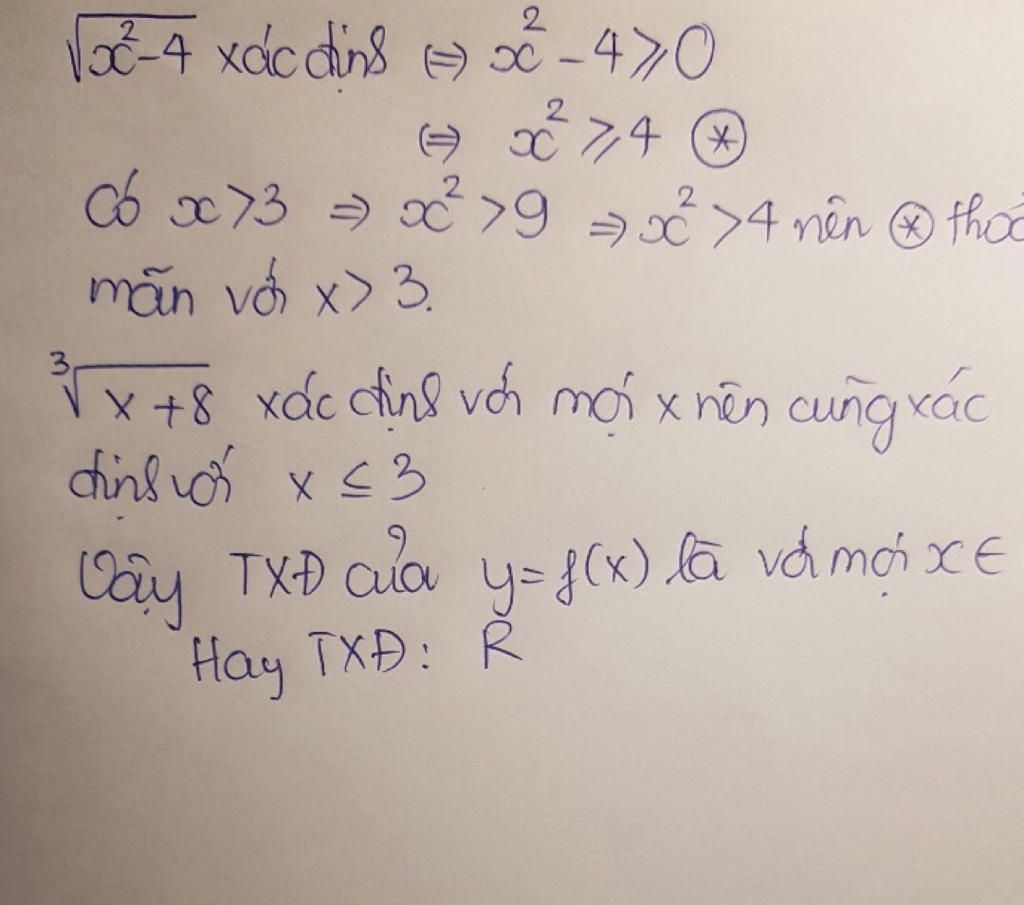 √(x²-4) xác định ⇔ x² - 4 ⩾ 0
⇔ x² ⩾ 4 ⊛
Có x > 3 ⇒ x² > 9 ⇒ x² > 4 nên ⊛ thoả
mãn với x > 3.
∛(x + 8) xác định với mọi x nên cũng xác
định với x ≤ 3
Vậy TXĐ của y = f(x) là với mọi x ∈
Hay TXĐ: R